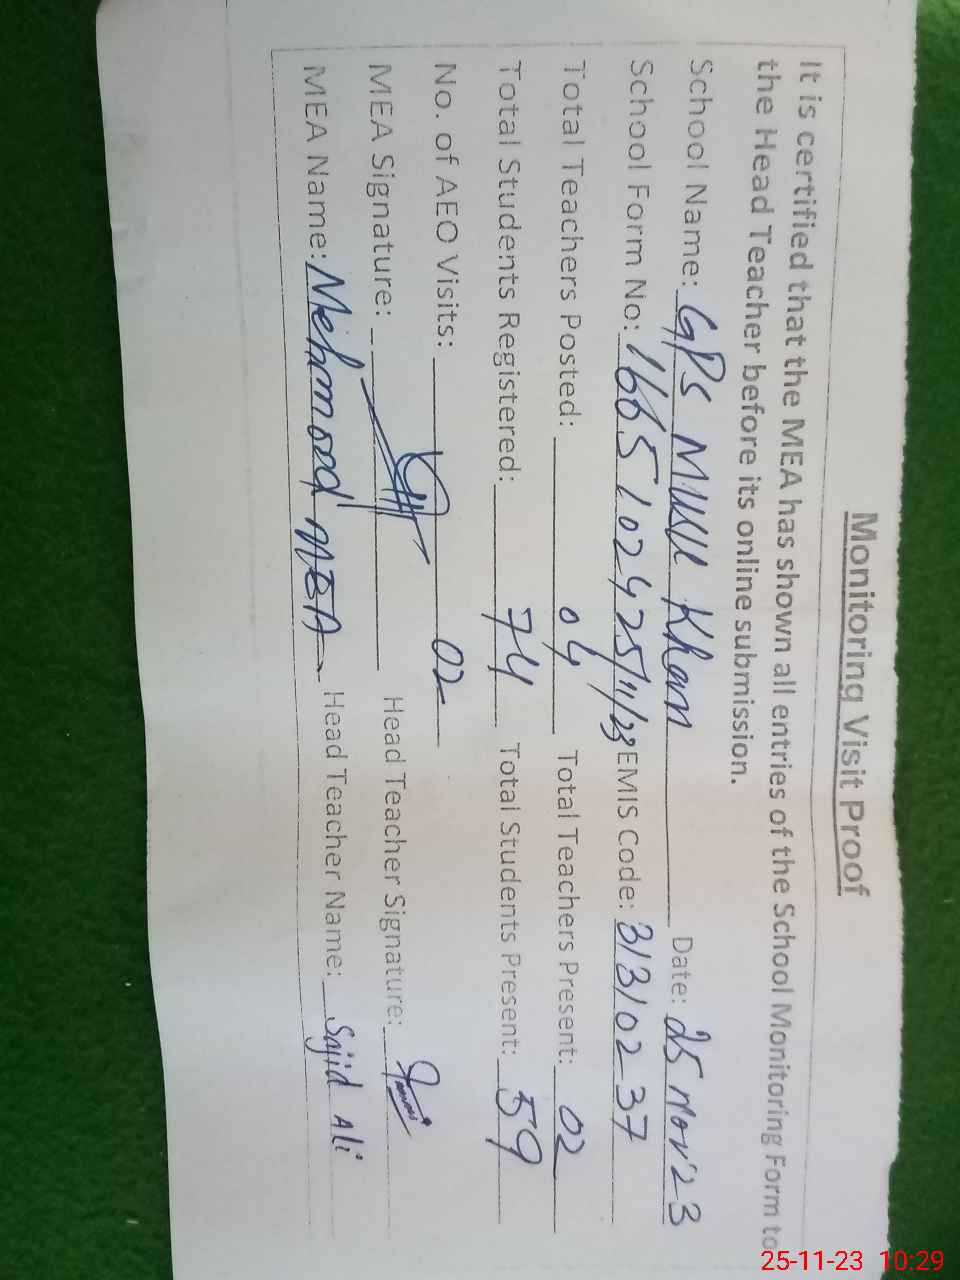 Monitoring Visit Proof
It is certified that the MEA has shown all entries of the School Monitoring Form to
the Head Teacher before its online submission.
School Name: GPS Musa Khan Date: 25 Nov 23
School Form No: 16651024 25/11/23 EMIS Code: 31310237
Total Teachers Posted: 04 Total Teachers Present: 02
Total Students Registered: 74 Total Students Present: 59
No. of AEO Visits: 02
MEA Signature: Head Teacher Signature:
MEA Name: Mehmood Head Teacher Name: Sajid Ali
25-11-23 10:29